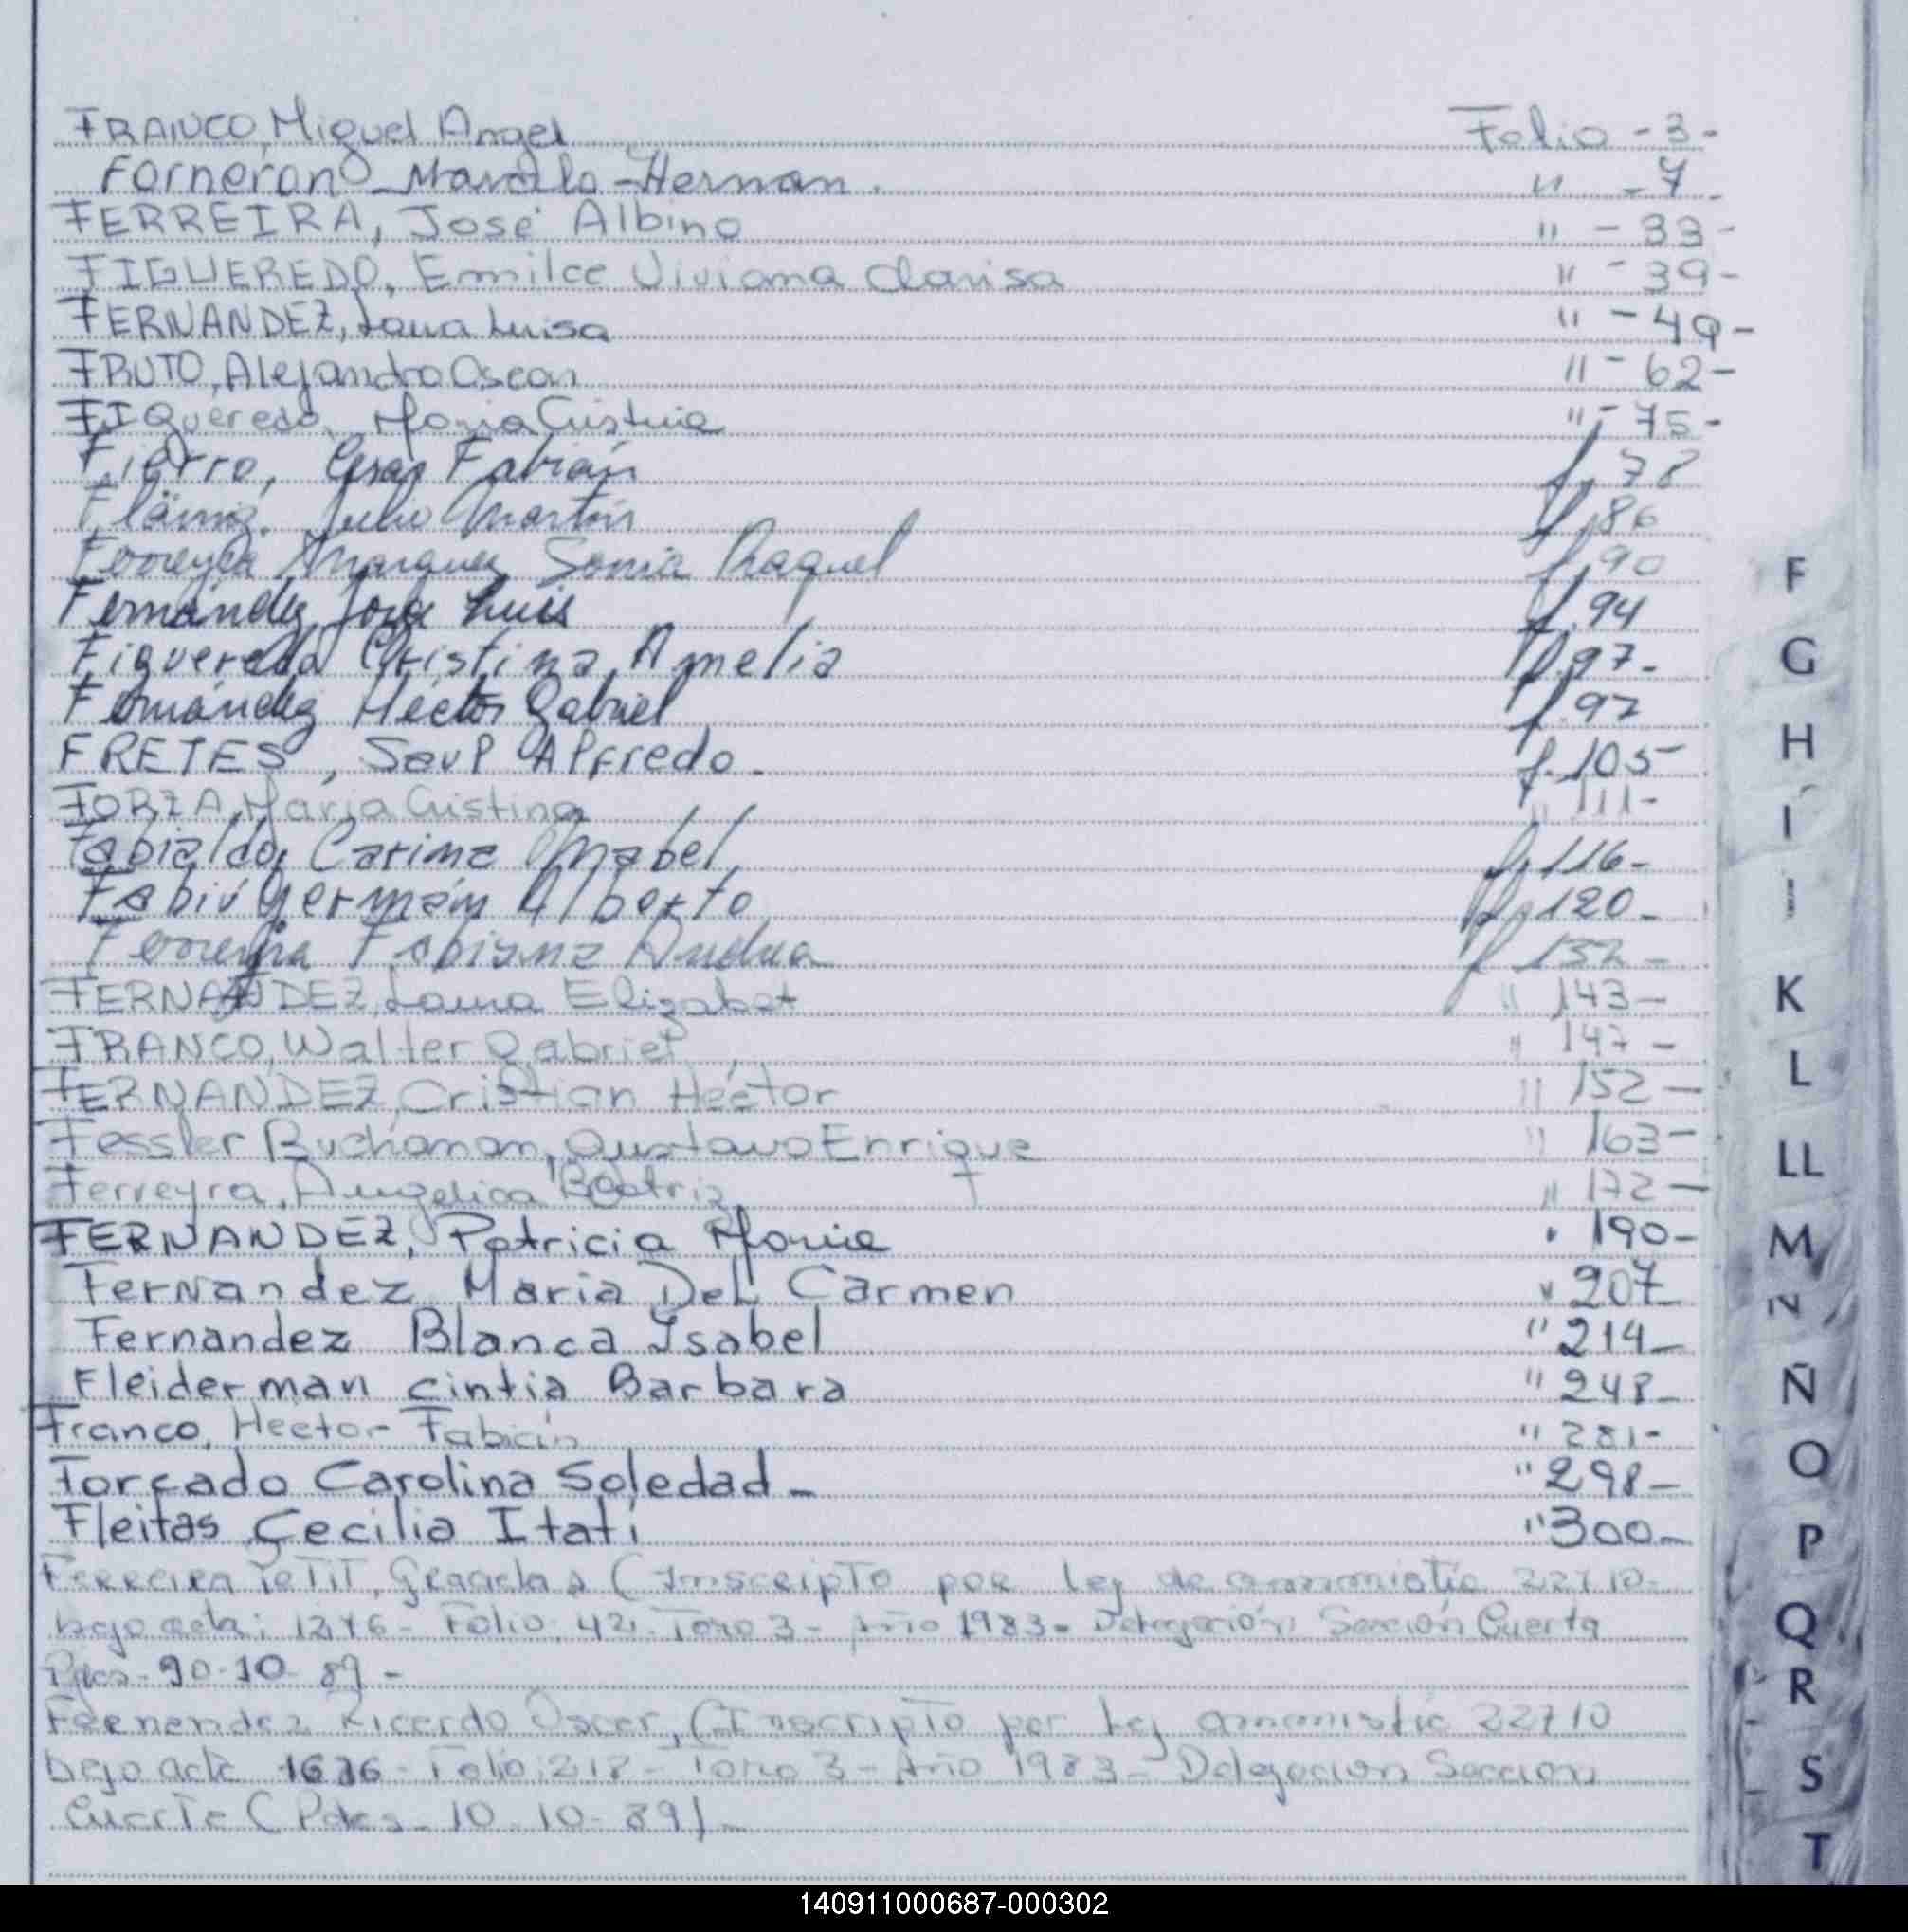 FRANCO, Miguel Angel Folio - 3 -
Forneron - Marcelo - Hernan. " - 7 -
FERREIRA, José Albino " - 33 -
FIGUEREDO, Emilce Viviana Clarisa " - 39 -
FERNANDEZ, Laura Luisa " - 49 -
FRUTO, Alejandro Oscar " - 62 -
FIGueredo, Maria Cristina " - 75 -
Fierro, Cesar Fabián f. 78
Julio Martín f. 86
Ferreyra Marquez Sonia Raquel f. 90
Fernández Jorge Luis f. 94
Figueredo Cristina Amelia f. 97 -
Fernández Héctor Gabriel f. 97
FRETES, Saul Alfredo - f. 105 -
FORZA, Maria Cristina " 111 -
Fabialdo, Carina Mabel, f. 116 -
Germán Alberto f. 120 -
Ferreyra Fabiana Andrea f. 132 -
FERNANDEZ, Laura Elizabet " 143 -
FRANCO, Walter Gabriel " 147 -
FERNANDEZ, Cristian Héctor " 152 -
Fessler Buchanan, Gustavo Enrique " 163 -
Ferreyra, Angelica Beatriz " 172 -
FERNANDEZ, Patricia Maria " 190 -
Fernandez Maria Del Carmen " 207
Fernandez Blanca Isabel " 214 -
Fleiderman cintia Barbara " 248 -
Franco, Hector Fabián " 281 -
Forcado Carolina Soledad - " 298 -
Fleitas Cecilia Itatí " 300 -
Ferreira PeTiT, Graciela (Inscripto por Ley de ammistia 22710 -
bajo acta: 1276 - Folio: 42 - Tomo 3 - Año 1983 - Delegación Sección Cuarta
10 - 89 -
Fernandez Ricardo Oscar, (Inscripto por Ley ammistia 22710
bajo acta 1676 - Folio: 218 - Tomo 3 - Año 1983 - Delegacion Seccion
Cuarta ( 10 - 10 - 89) -
F
G
H
I
J
K
L
LL
M
N
Ñ
O
P
Q
R
S
T
140911000687-000302